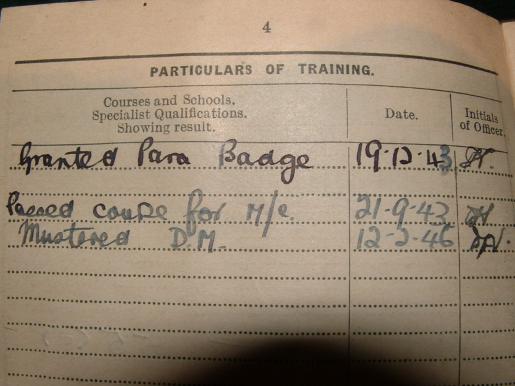 4
PARTICULARS OF TRAINING.
Courses and Schools, Specialist Qualifications. Showing result. Date. Initials of Officer.
Granted Para Badge 19·12·43
Passed course for M/c 21-9-43
Mustered D.M. 12-2-46